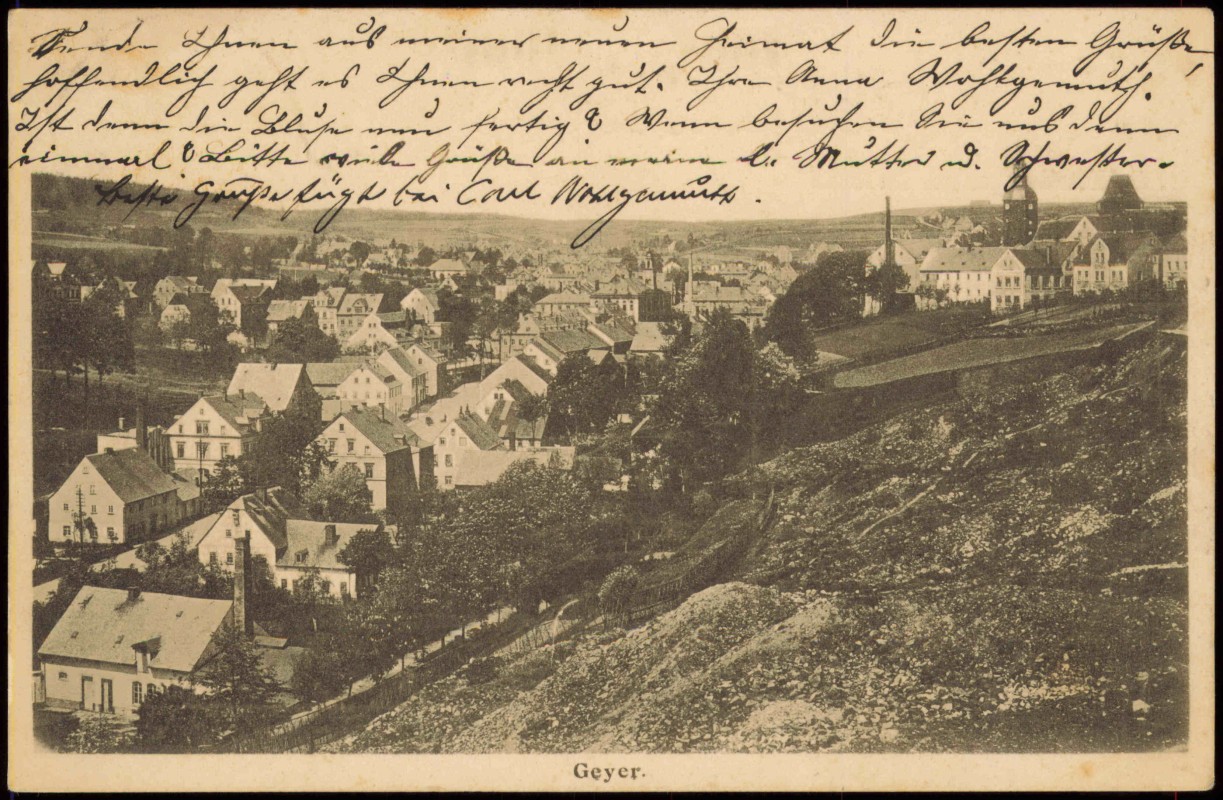 Sende Ihnen aus meiner neuen Heimat die besten Grüße,
hoffendlich geht es Ihnen recht gut. Ihre Anna Wohlgemuth.
Ist denn die Bluse nun fertig? Wenn besuchen Sie uns denn
einmal? Bitte viele Grüße an meine l. Mutter u. Schwester.
beste Grüße fügt bei Carl Wohlgemuth.
Geyer.